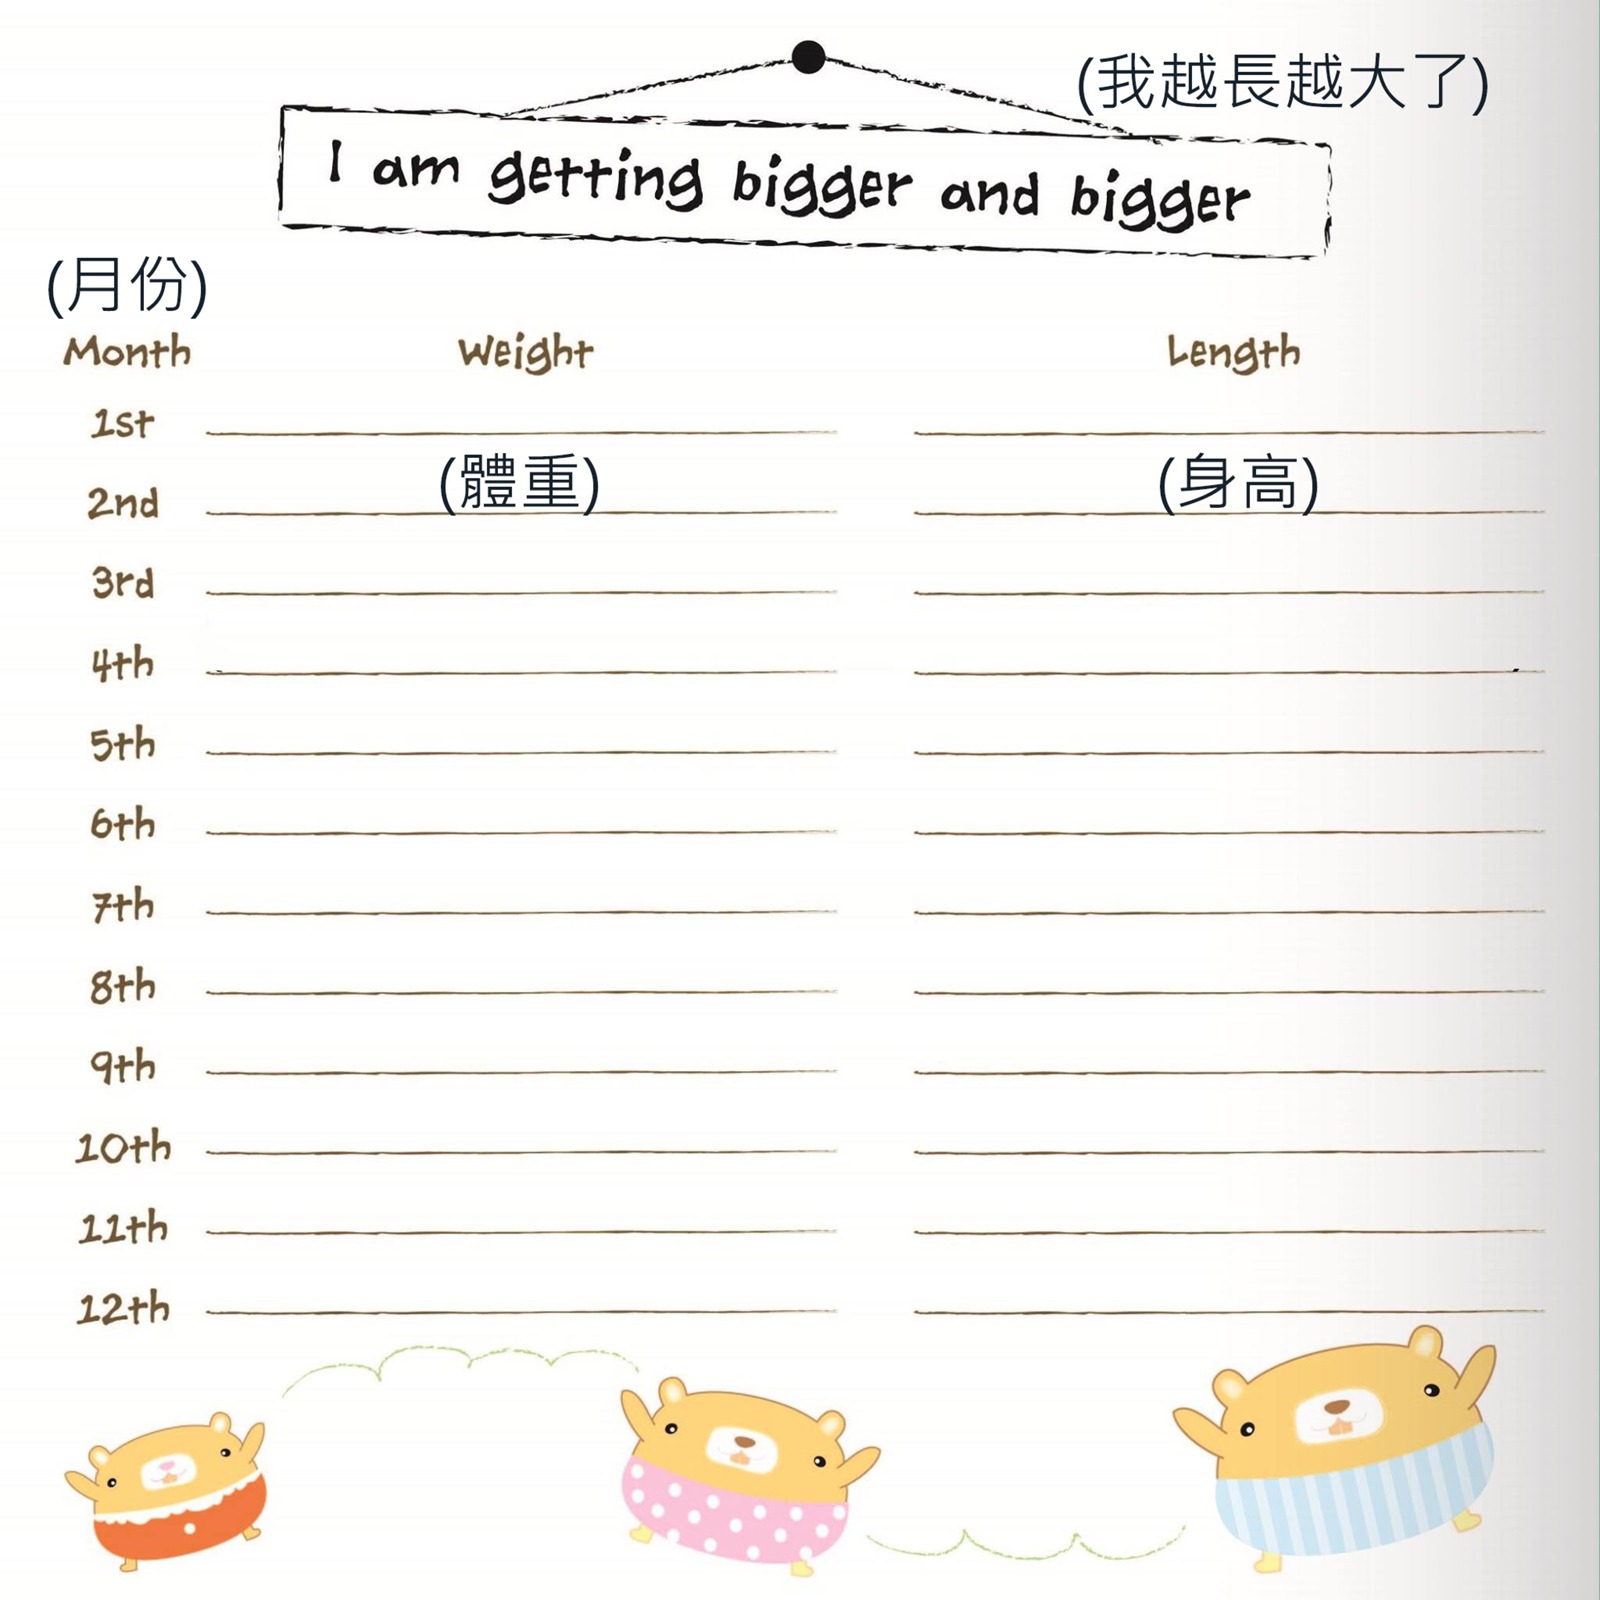 (我越長越大了)
I am getting bigger and bigger
(月份)
Month Weight Length
1st
(體重) (身高)
2nd
3rd
4th
5th
6th
7th
8th
9th
10th
11th
12th